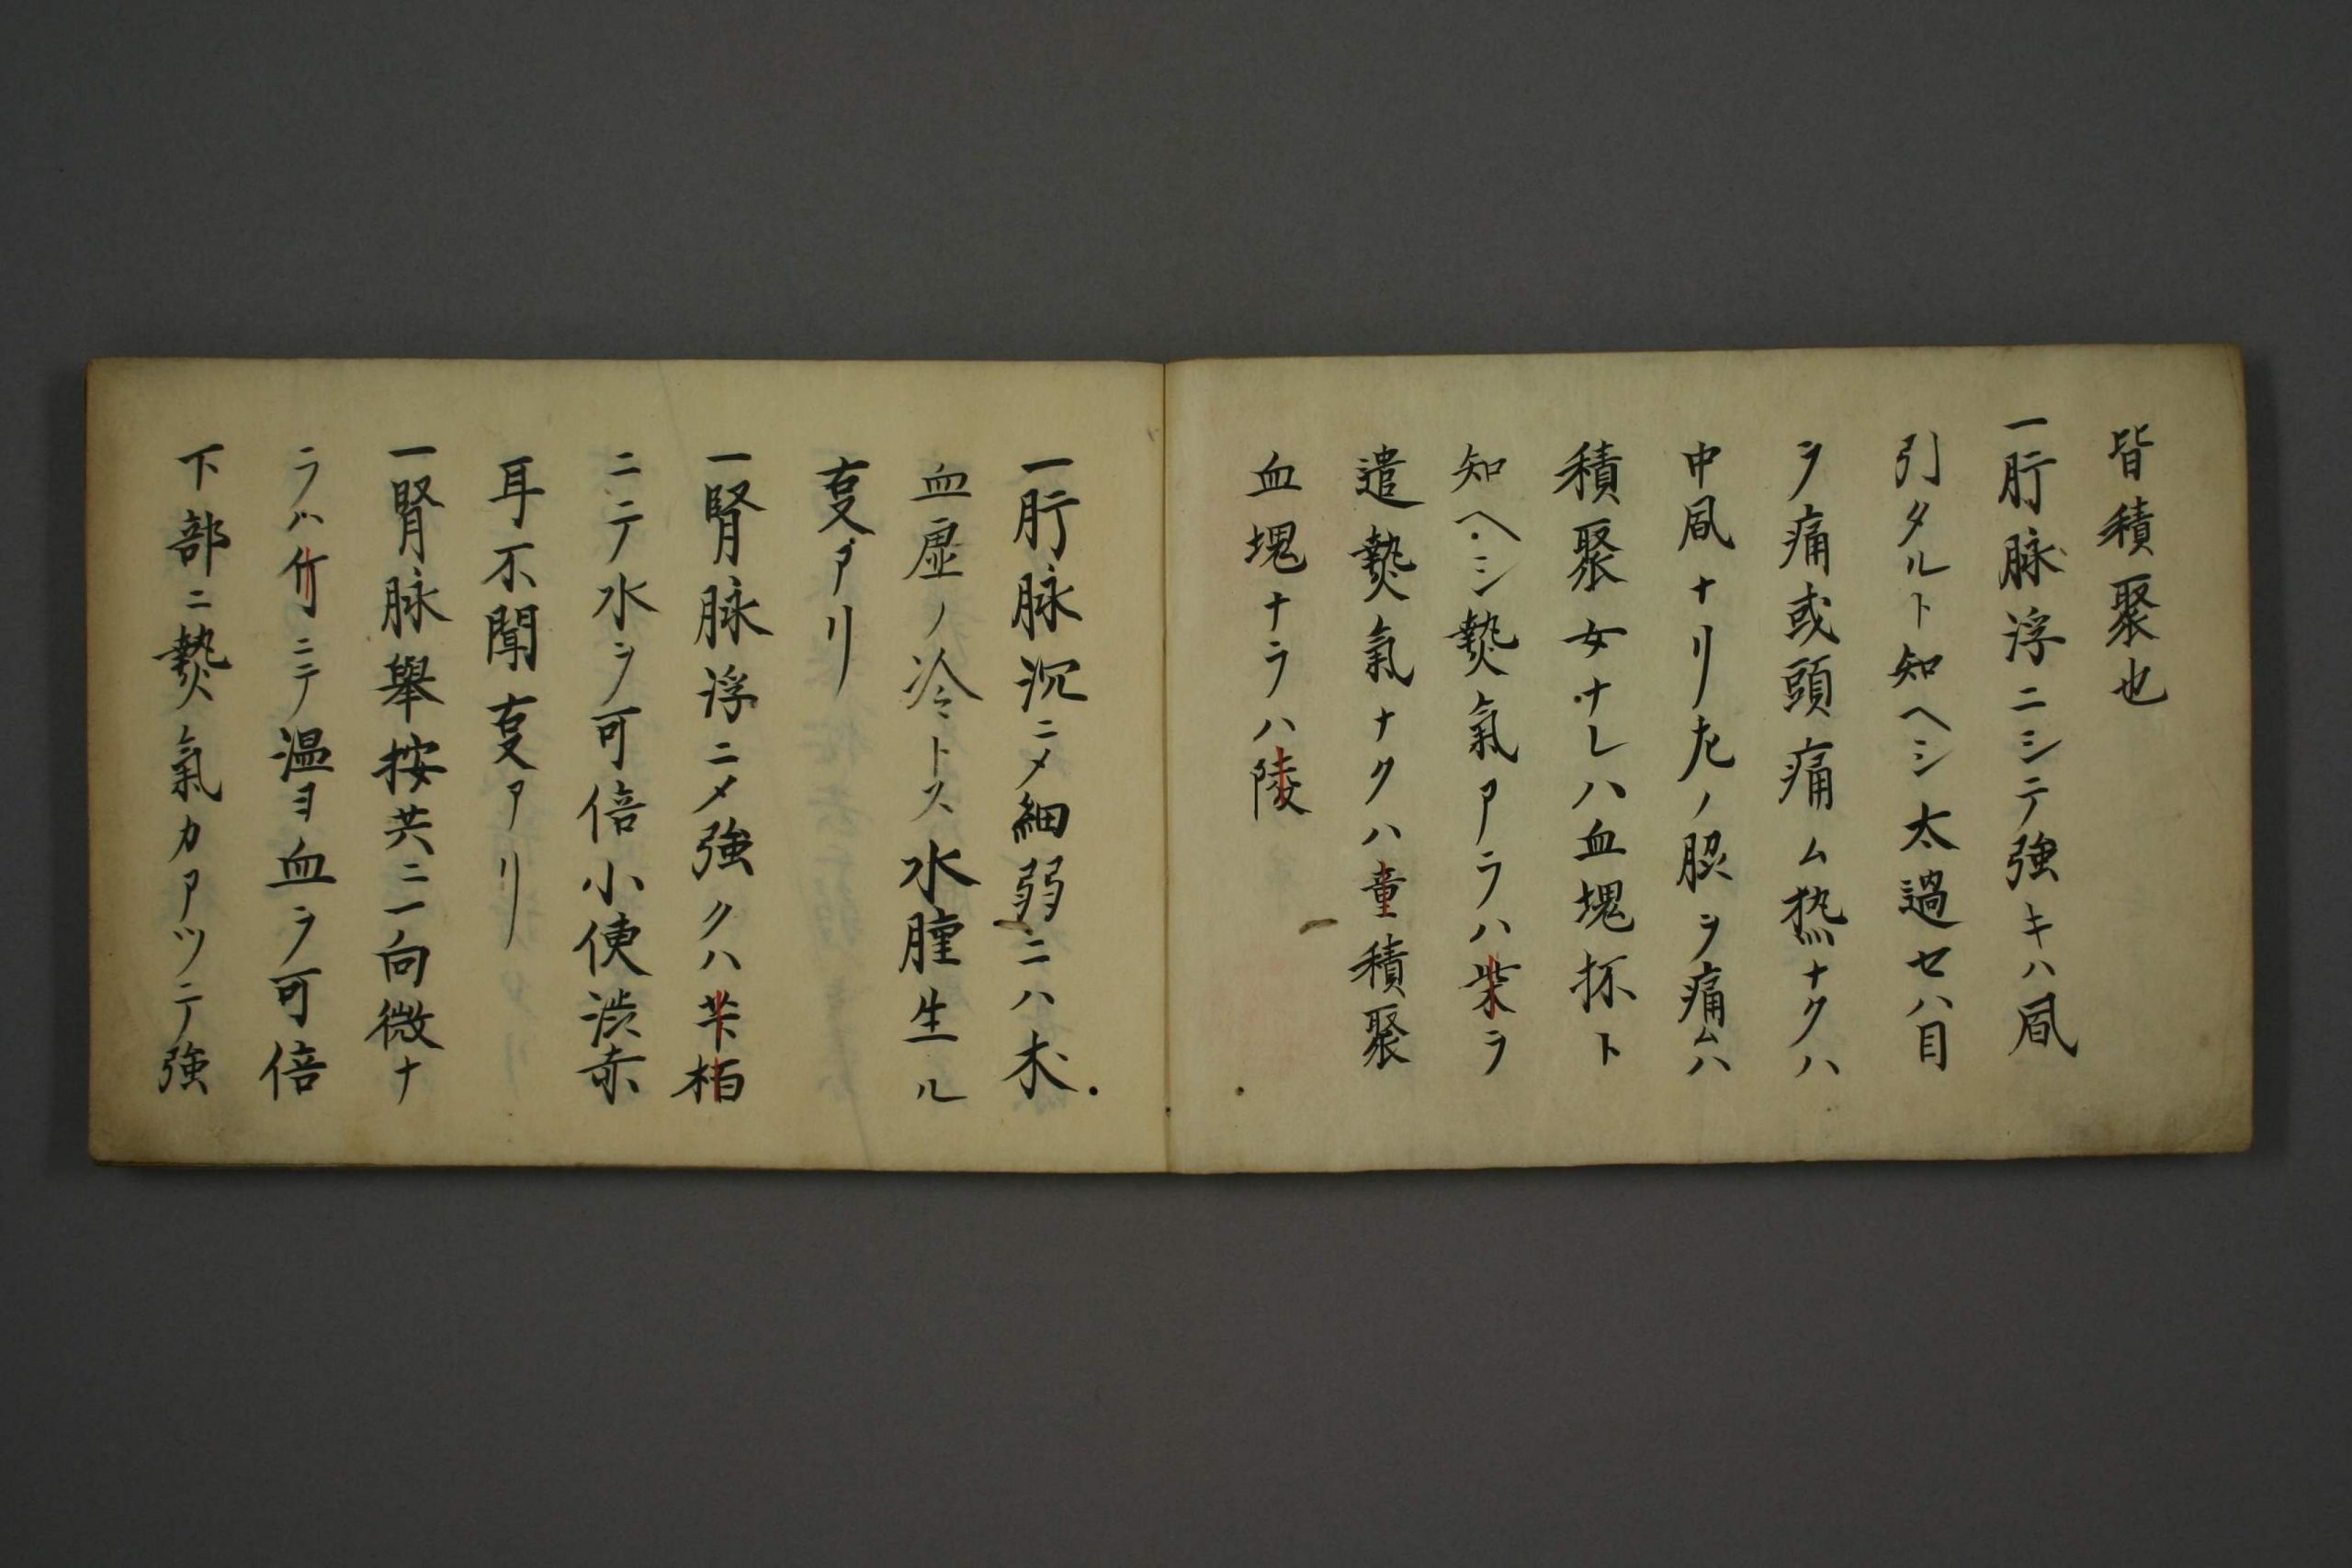 皆積聚也
一肝脉浮ニシテ強キハ風
引タルト知ヘシ太過セハ目
ヲ痛或頭痛ム熱ナクハ
中風ナリ左ノ脇ヲ痛ムハ
積聚女ナレハ血塊抔ト
知ヘシ𤍠氣アラハ柴ラ
遣𤍠氣ナクハ童積聚
血塊ナラハ陵
一肝脉沉ニメ細弱ニハ木
血虚ノ冷トス水腫生ル
㕝アリ
一腎脉浮ニメ強クハ芐栢
ニテ水ヲ可倍小便渋赤
耳不聞㕝アリ
一腎脉擧按共ニ一向微ナ
ラハ竹ニテ温ヨ血ヲ可倍
下部ニ𤍠氣カアツテ強